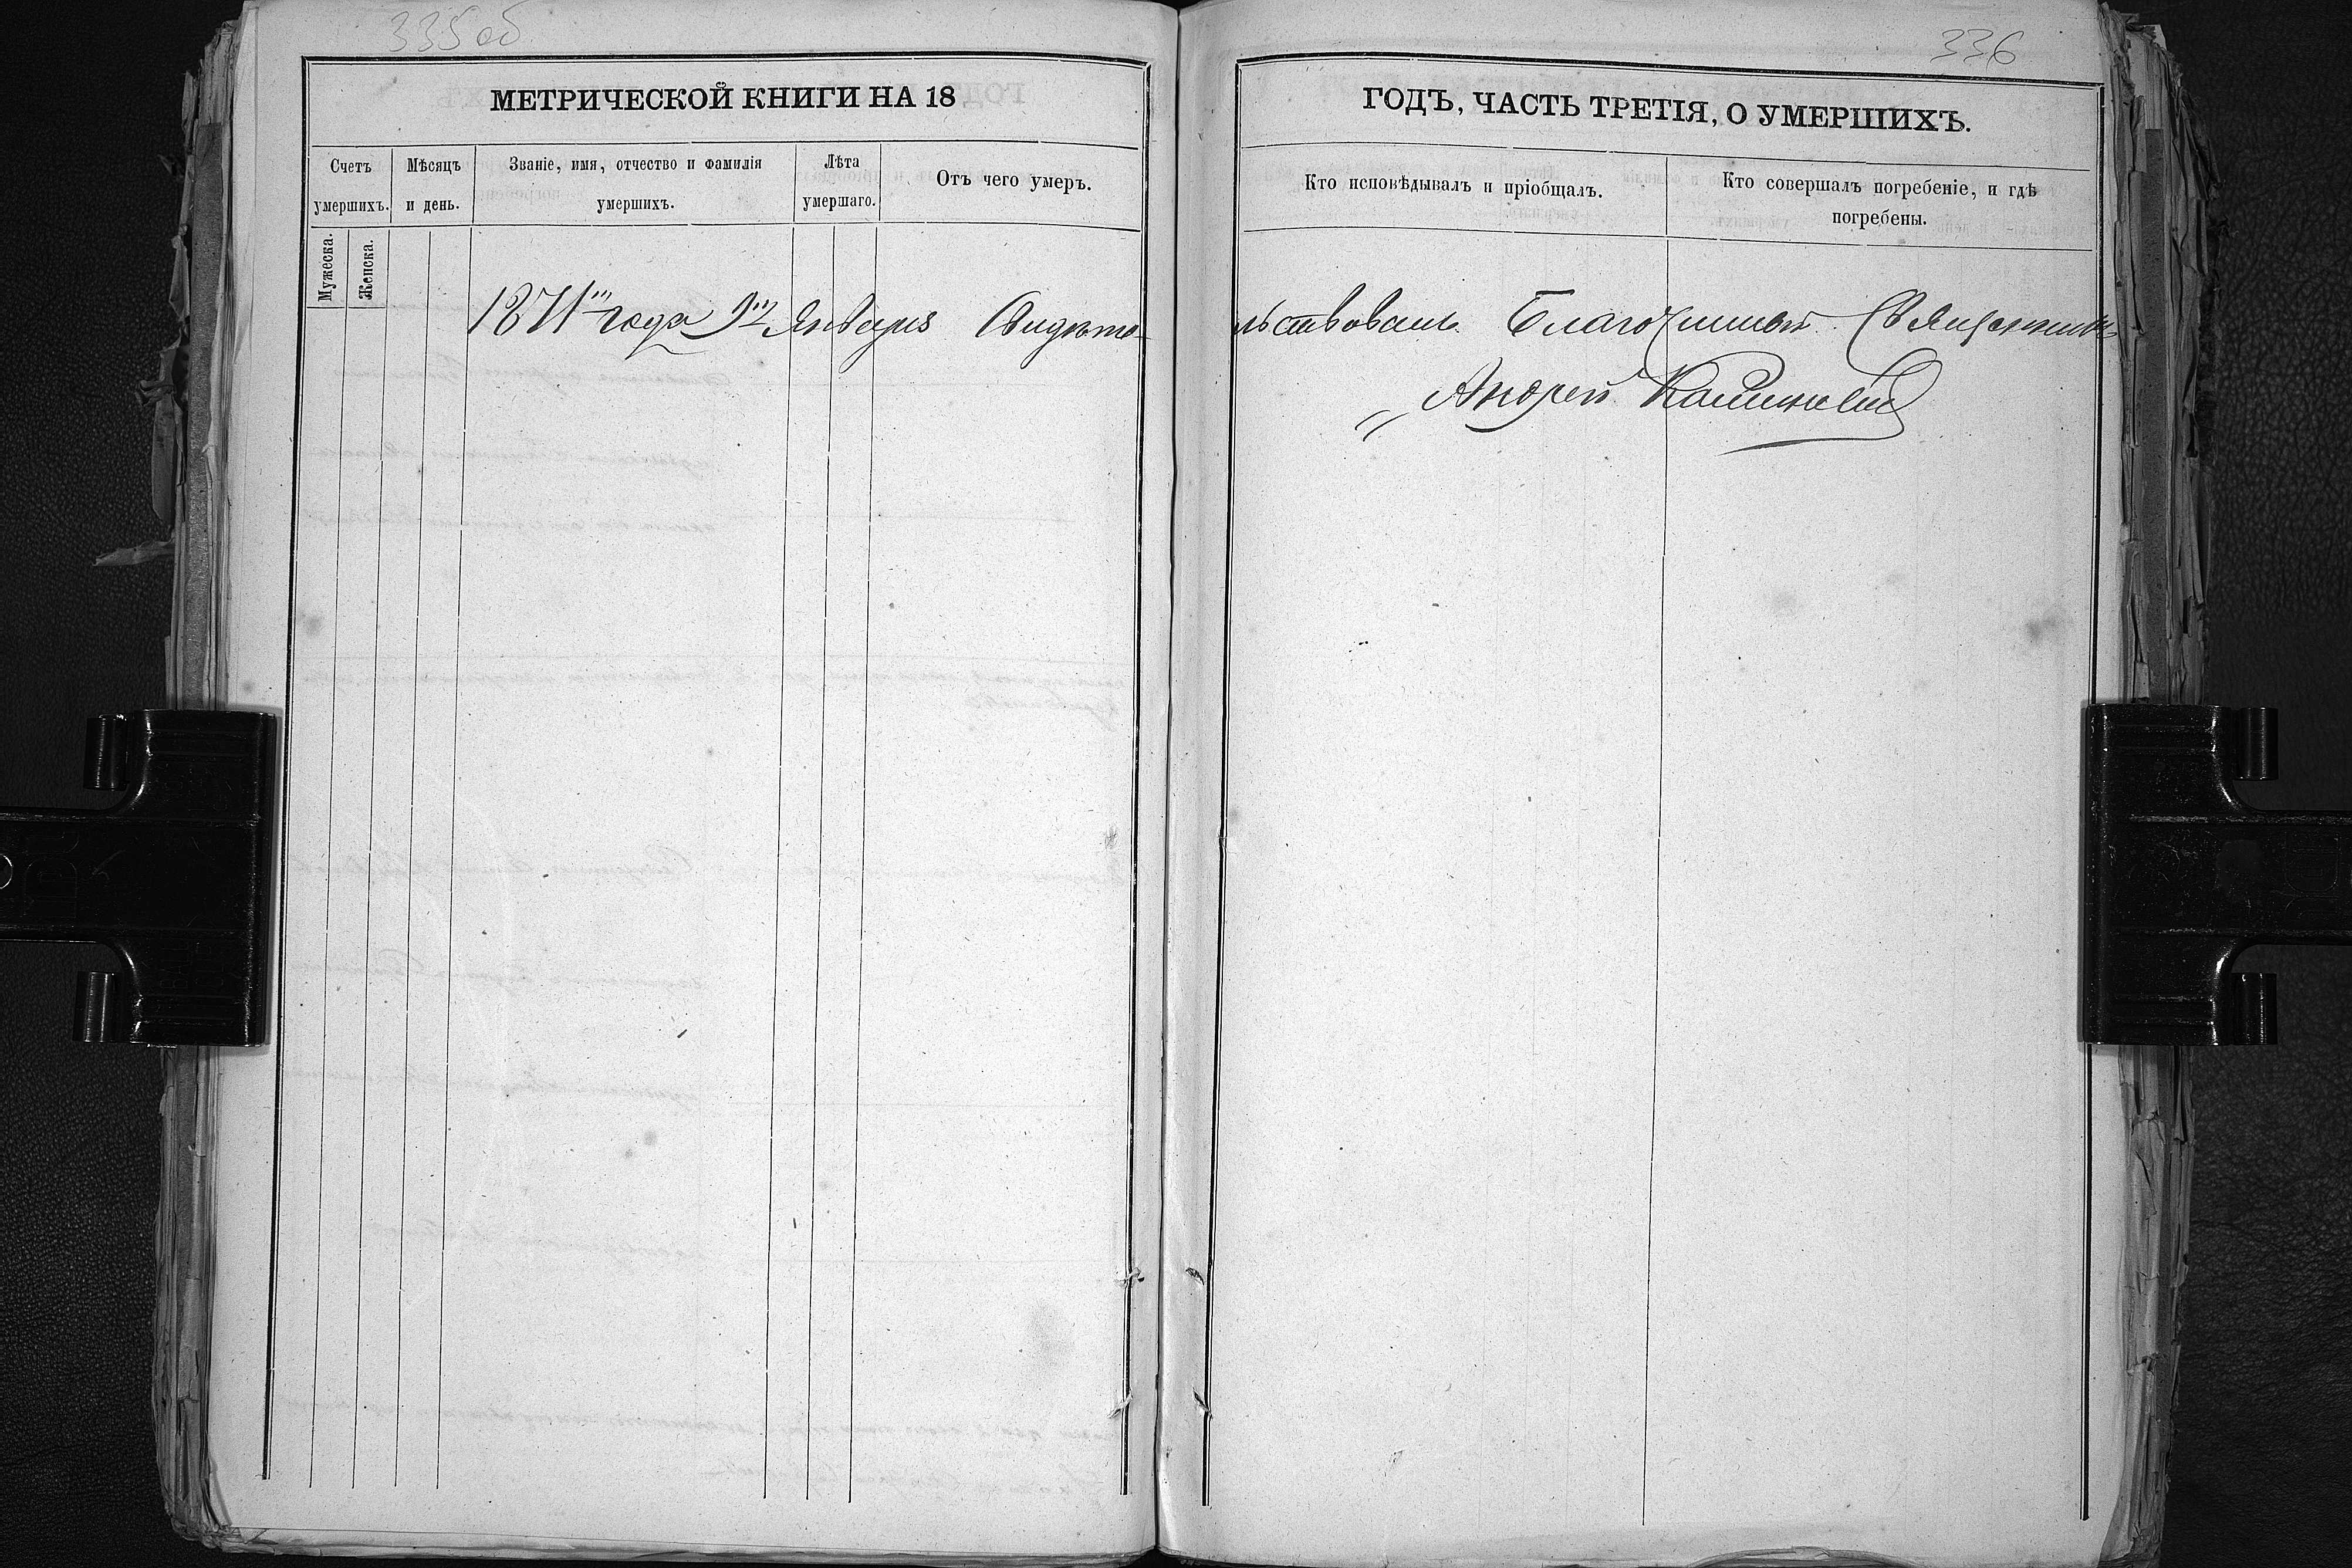 335 об
336
МЕТРИЧЕСКОЙ КНИГИ НА 18
ГОДЪ, ЧАСТЬ ТРЕТІЯ, О УМЕРШИХЪ.
Счетъ умершихъ.
Мѣсяцъ и день.
Званіе, имя, отчество и фамилія умершихъ.
Лѣта умершаго.
Отъ чего умеръ.
Кто исповѣдывалъ и пріобщалъ.
Кто совершалъ погребеніе, и гдѣ погребены.
Мужеска.
Женска.
1871го года 9го Января Свидѣте-
льствовалъ Благочинный Священникъ
Андрей